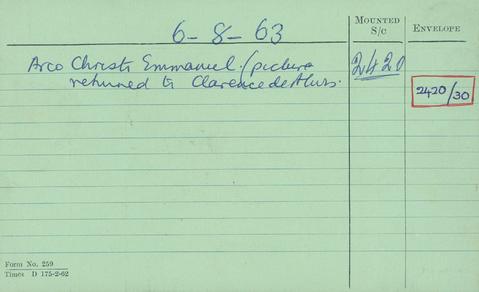 6-8-63
MOUNTED S/C
ENVELOPE
Arco Christi Emmanuel. (picture 2420
returned to Clarence de
2420/30
FORM NO. 259
TIMES D 175-2-62